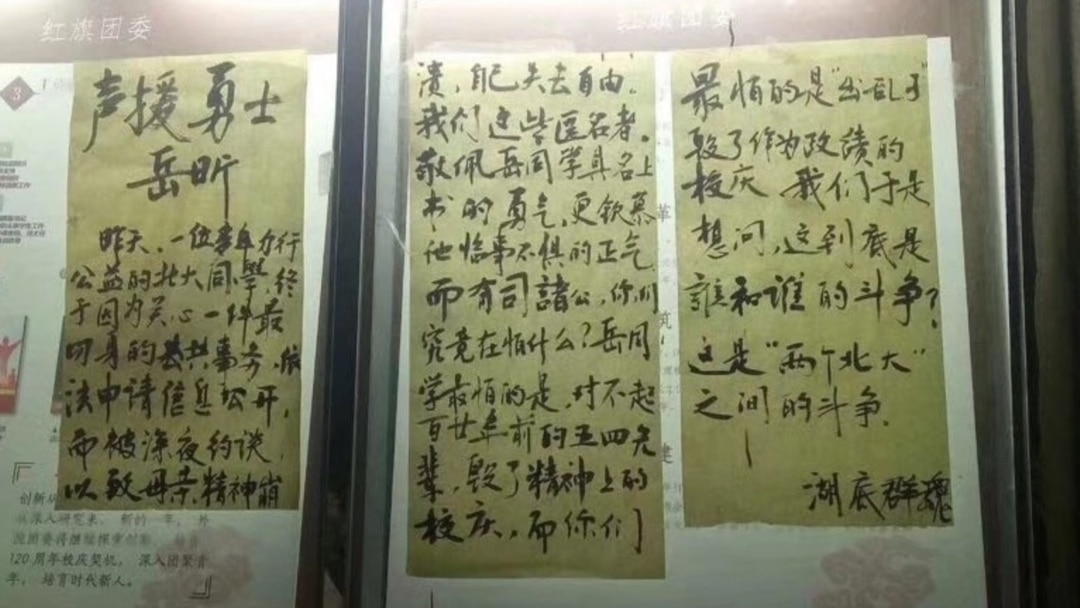 红旗团委
3
声援勇士
岳昕
昨天，一位多年力行
公益的北大同學，终
于因为关心一件最
切身的公共事务，依
法申请信息公开，
而被深夜约谈，
以致母亲精神崩
120周年校庆契机，深入团聚青
年，培育时代新人。
红旗团委
溃，自己失去自由。
我们这些匿名者，
敬佩岳同学具名上
书的勇气，更钦慕
他临事不惧的正气
而有司諸公，你们
究竟在怕什么？岳同
学最怕的是，对不起
百廿年前的五四先
辈，毁了精神上的
校庆，而你们
革
筑
建
最怕的是“出乱子”
毁了作为政績的
校庆 我们于是
想问，这到底是
誰和谁的斗争？
这是“两个北大”
之间的斗争．
湖底群魂